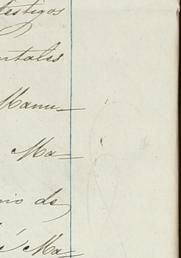 testigos
entales
Manu=
Ma=
rio de
é Ma=